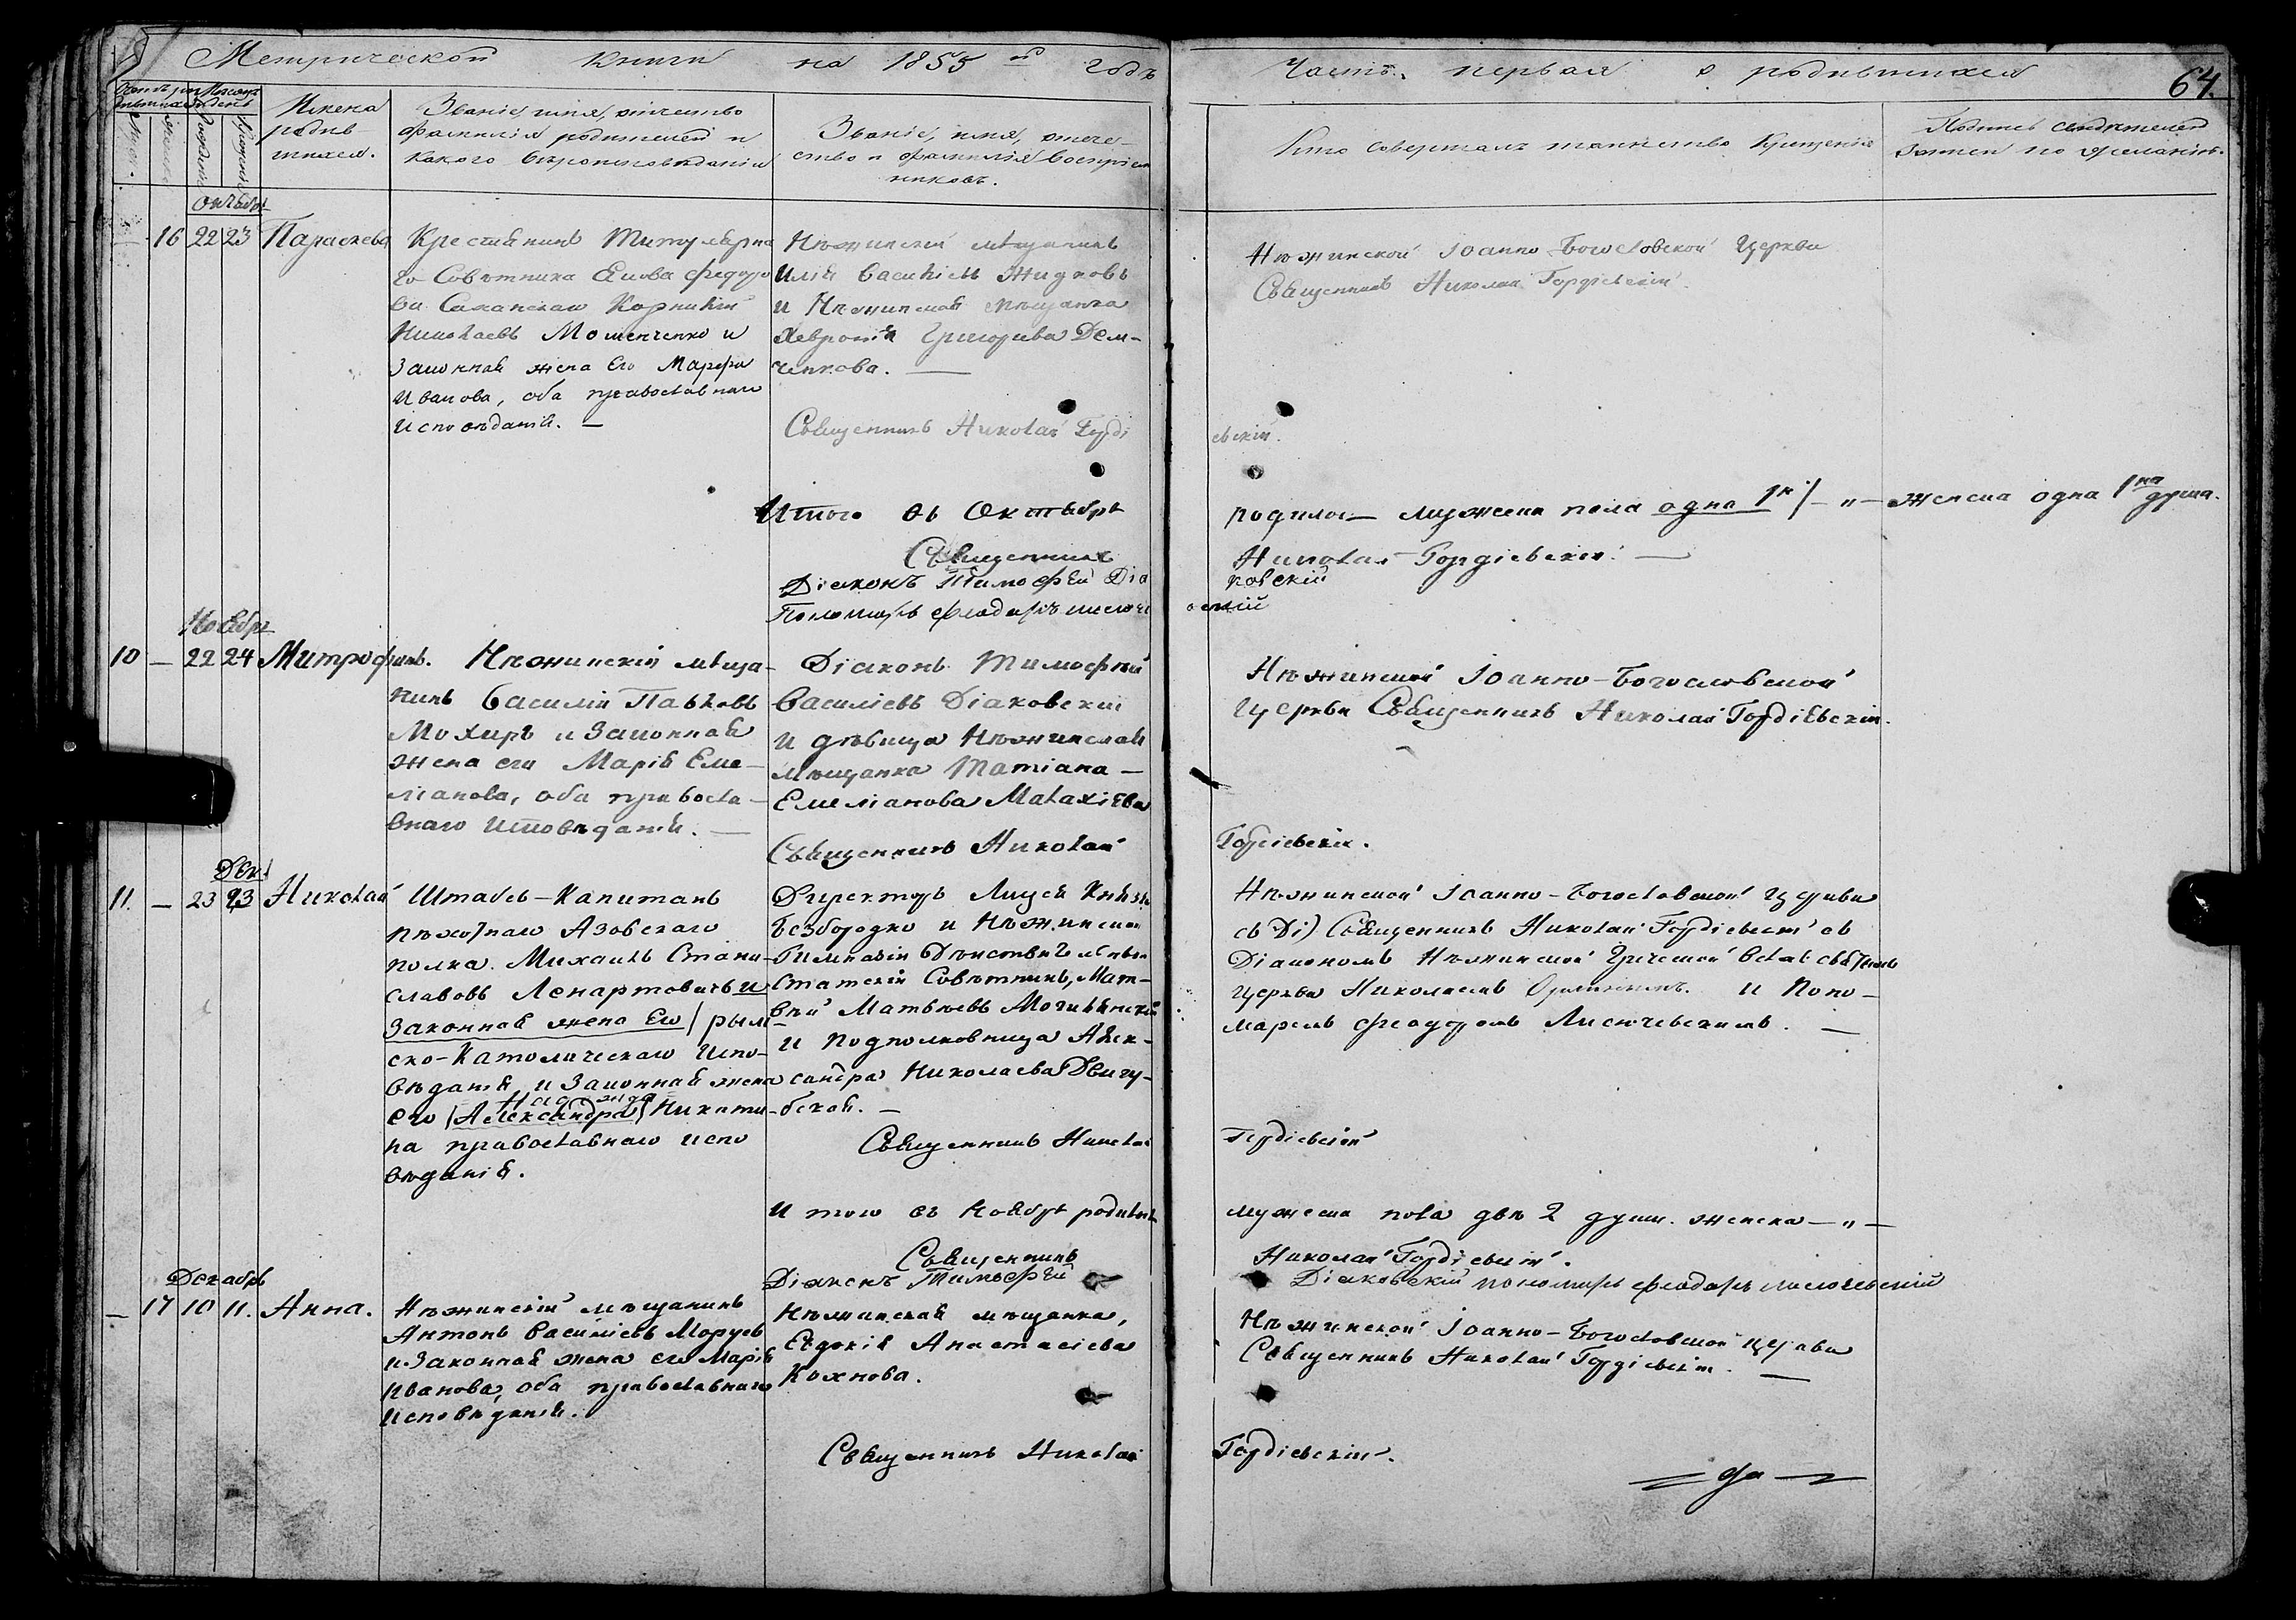 Метрической книги на 1855й годъ
Часть первая о родившихся
64.
Имена
родив-
шихся.
Званіе, имя, отчество
фамилія родителей и
какого вѣроисповѣданія
Званіе, имя, отче-
ство и фамилія воспріем
никовъ.
Кто совершалъ таинство крещенія
Подпись свидѣтелей
записи по желанію.
Октябрь
16 22 23 Параскева
Крестьянинъ Титулярна
го Совѣтника Федоро
ва Корнилій
Николаевъ Мошенченко и
Законная жена Его Марфа
Иванова, оба православнаго
исповѣданія. —
Нѣжинскій мѣщанинъ
Илья Васильевъ Жидковъ
и Нѣжинская мѣщанка
Хевронія Григорьева Дем-
ченкова. —
Священникъ Николай Горді
евскій.
Нѣжинской Іоанно-Богословской Церкви
Священникъ Николай Гордіевскій.
Итого въ Октябрѣ
родилось мужеска пола одна 1н — „ — женска одна 1на душа.
Священникъ
Николай Гордіевскій. —
Діаконъ Тимофей Діа
ковскій
Пономарь Феодоръ
Ноябрь
10 — 22 24 Митрофанъ.
Нѣжинскій мѣща-
нинъ Василій Павловъ
Мохиръ и Законная
жена его Марія Еме-
ліанова, оба правосла-
внаго исповѣданія. —
Діаконъ Тимофей
Василіевъ Діаковскій
и дѣвица Нѣжинская
мѣщанка Татіана —
Емеліанова Малахіева
Священникъ Николай
Гордіевскій.
Нѣжинской Іоанно-Богословской
Церкви Священникъ Николай Гордіевскій.
Дек.
11. — 23 23 Николай
Штабсъ-Капитанъ
пѣхотнаго Азовскаго
полка. Михаилъ Стани-
славовъ Ленартовичъ и
Законная жена Его / рым
ско-Католическаго испо-
вѣданія, и Законная жена
Надежда
его (Александра) Никити-
на православнаго испо
вѣданія.
Директоръ Лицея Князя
Безбородко и Нѣжинской
Гимназіи Дѣйствительный
Статскій Совѣтникъ, Мат-
вѣй Матвѣевъ Могилянскій
и Подполковница Алек-
сандра Николаева Двигу-
бская. —
Священникъ Николай
Гордіевскій
Нѣжинской Іоанно-Богословской Церкви
Священникъ Николай Гордіевскій съ
Діакономъ Нѣжинской Греческой Всѣхсвятской
Церкви Николаемъ и Поно-
маремъ Феодоромъ. —
Итого въ Ноябрѣ родилось
мужеска пола двѣ 2 души. женска — „ —
Священникъ
Николай Гордіевскій.
Діаконъ Тимофей
Діаковскій пономарь Феодоръ
Декабрь
— 17 10 11. Анна.
Нѣжинскій мѣщанинъ
Антонъ Василіевъ Моруевъ
и Законная жена его Марія
Иванова, оба православнаго
исповѣданія.
Нѣжинская мѣщанка,
Евдокія Анастасіева
Кохнова.
Священникъ Николай
Гордіевскій.
Нѣжинской Іоанно-Богословской церкви
Священникъ Николай Гордіевскій. —